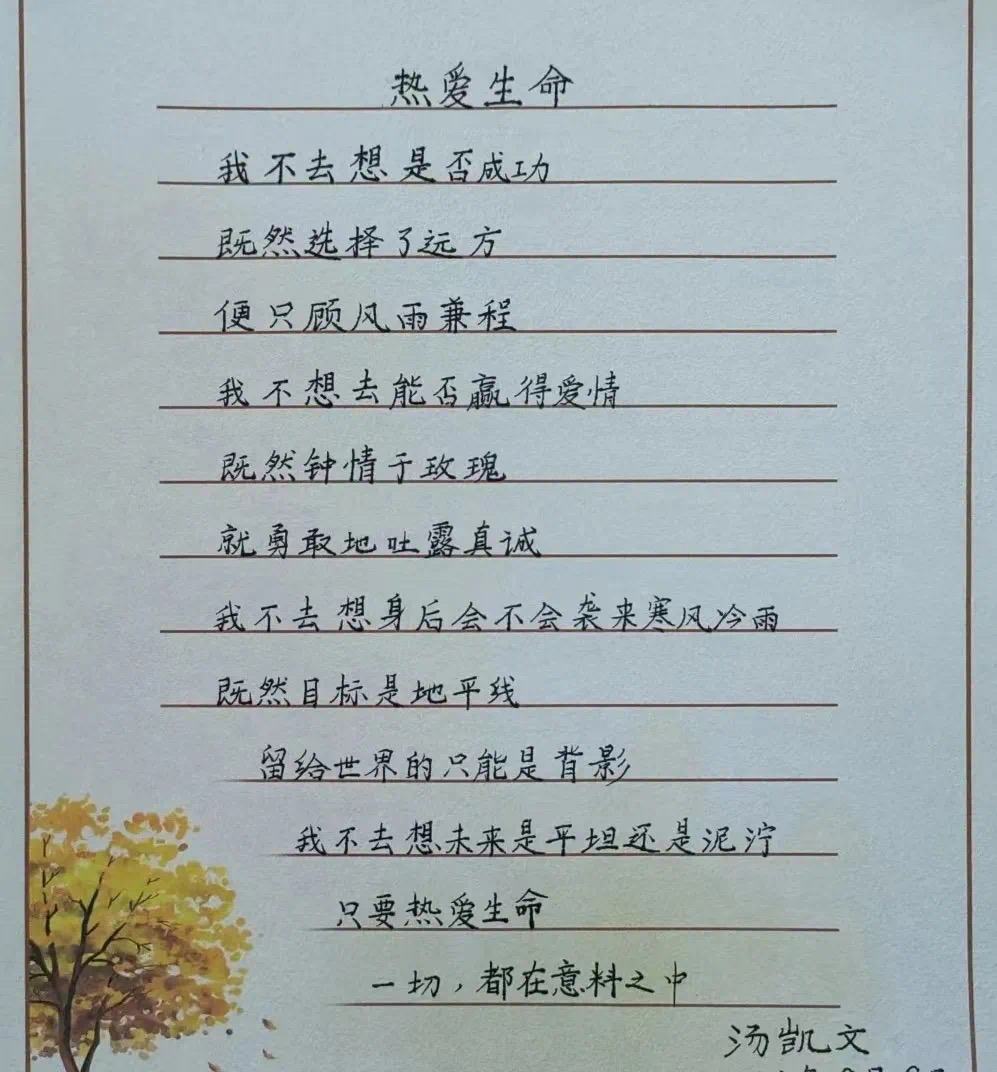 热爱生命
我不去想是否成功
既然选择了远方
便只顾风雨兼程
我不想去能否赢得爱情
既然钟情于玫瑰
就勇敢地吐露真诚
我不去想身后会不会袭来寒风冷雨
既然目标是地平线
留给世界的只能是背影
我不去想未来是平坦还是泥泞
只要热爱生命
一切，都在意料之中
汤凯文